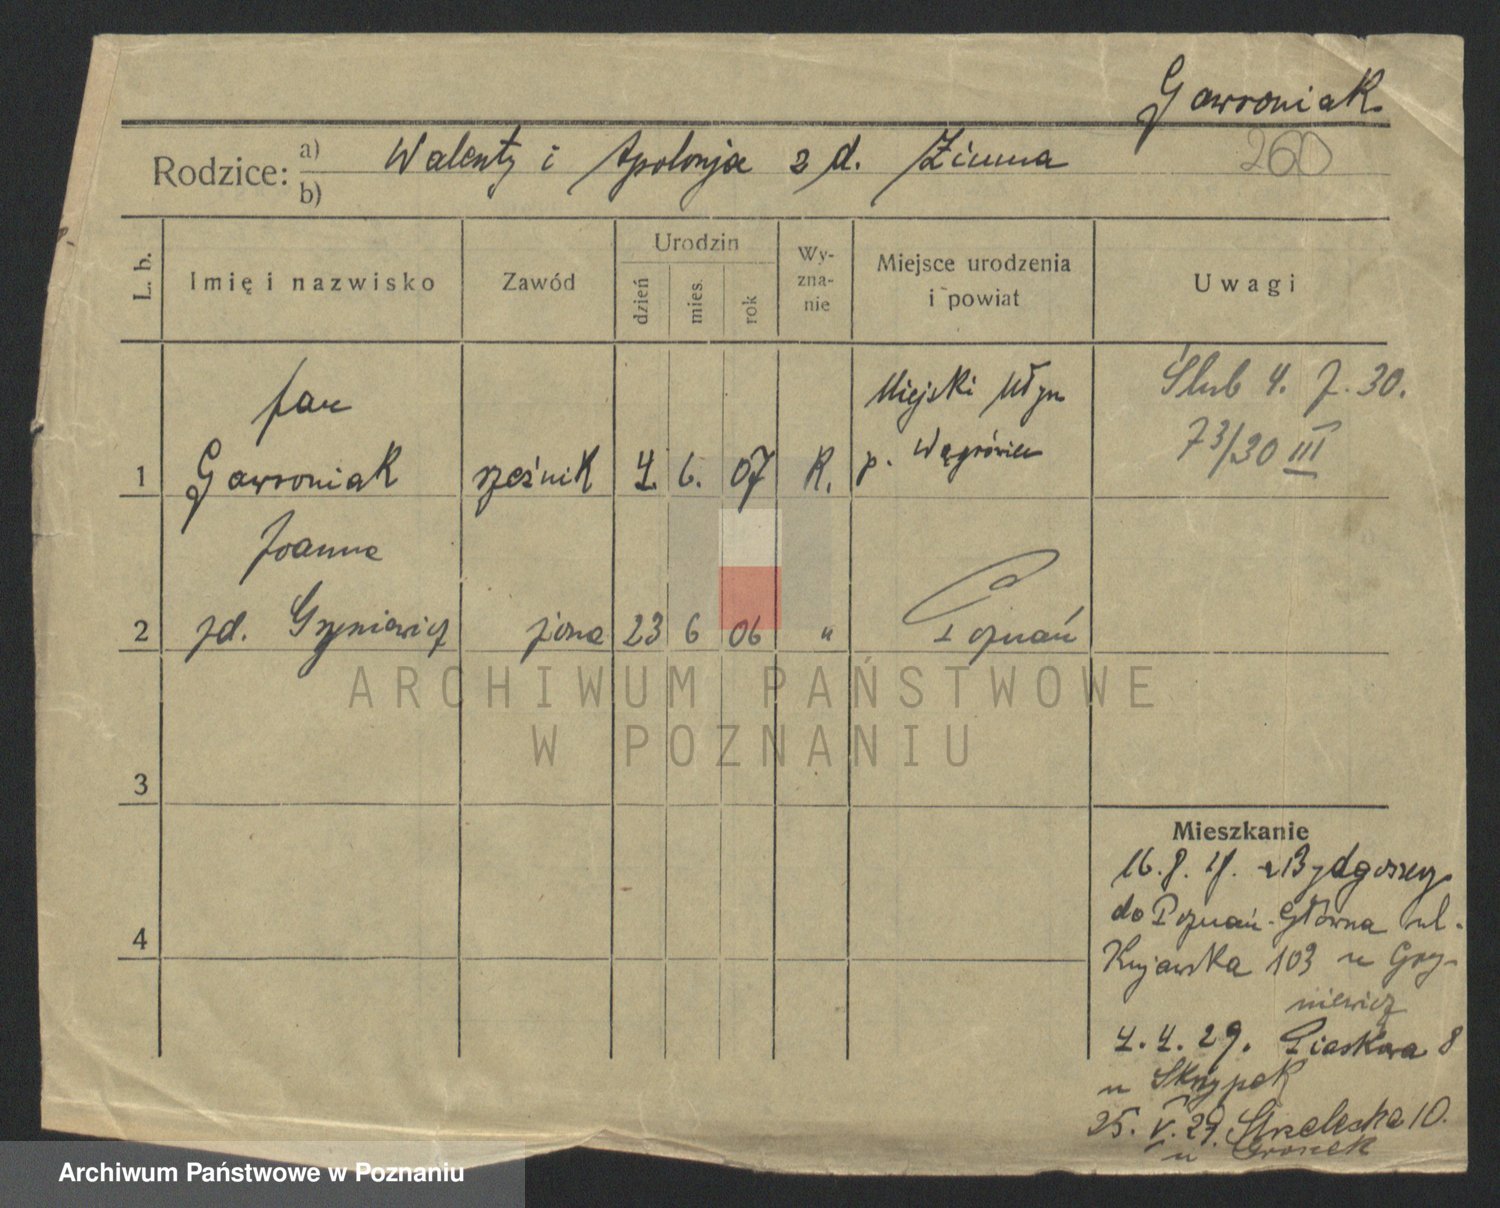 Gawroniak
260
Rodzice: a) Walenty i Apolonja z d. Zimna
b)
L. b.
Imię i nazwisko
Zawód
Urodzin
dzień
mies.
rok
Wy-
zna-
nie
Miejsce urodzenia
i powiat
Uwagi
Jan
1 Gawroniak rzeźnik 4. 6. 07 R.
Miejski Młyn
p. Wągrówiec
Ślub 4. 7. 30.
73/30 III
Joanna
2 zd. Gryniewicz żona 23 6 06 " Poznań
ARCHIWUM PAŃSTWOWE
W POZNANIU
3
4
Mieszkanie
16. 8. z Bydgoszczy
do Poznań-Główna ul.
Kujawska 103 u Gry-
niewicz
4. 4. 29. Piaskowa 8
u Skrzypek
25. V. 29. Strzelecka 10.
u
Archiwum Państwowe w Poznaniu